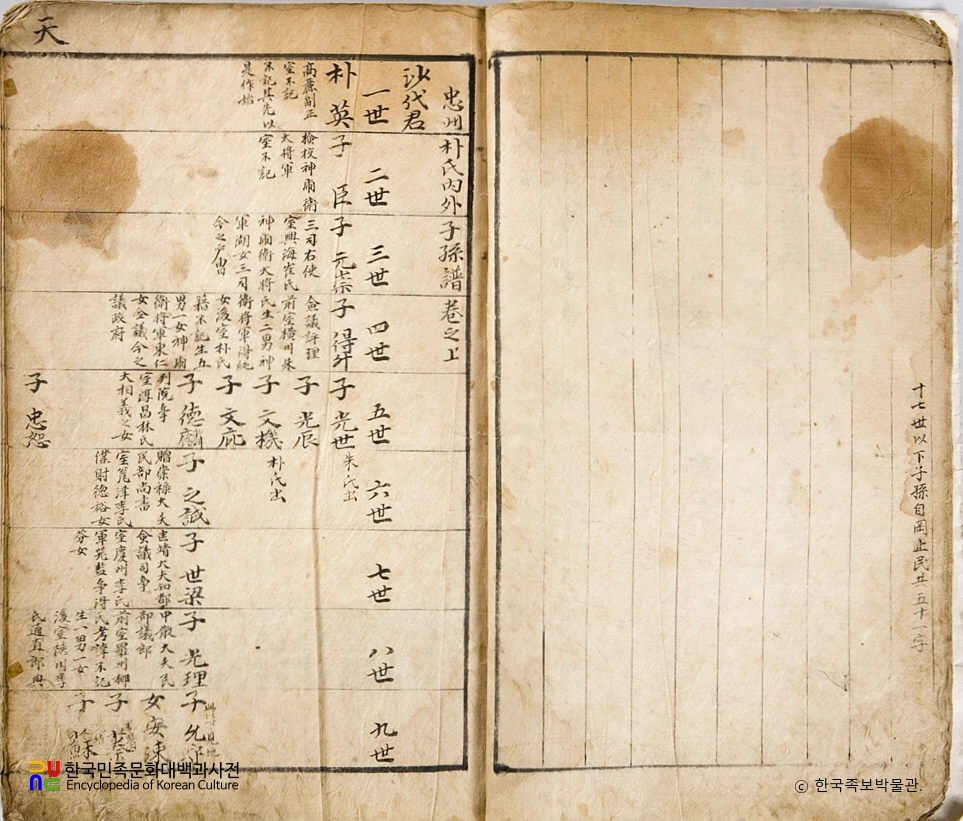 十七世以下子孫自岡止民廿五十一字
忠州朴氏內外子孫譜卷之上
沙代君
一世
二世
三世
四世
五世
六世
七世
八世
九世
朴英
高麗副正
室不記
不記其先以
是作始
子臣
檢校神虎衛
大將軍
室不記
子元崇
三司右使
室興海崔氏
神虎衛大將
軍湖女三司
子得升
僉議評理
前室橫川朱
氏生二男神
女後室朴氏
籍不記生五
男一女神虎
女僉議令之
議政府
子光世
朱氏出
子光辰
子文機
朴氏出
子文庇
子德麟
判院事
室淳昌林氏
大相義之女
子忠恕
子之誠
贈崇祿大夫
民部尚書
僕射德裕女
子世梁
僉議司事
室慶州李氏
芬女
子光理
中散大夫民
部議郎
前室羅州柳
氏考諱不記
生一男一女
後室陜川李
氏通直郎興
子允
女安
子
子
天
한국민족문화대백과사전
Encyclopedia of Korean Culture
ⓒ 한국족보박물관.